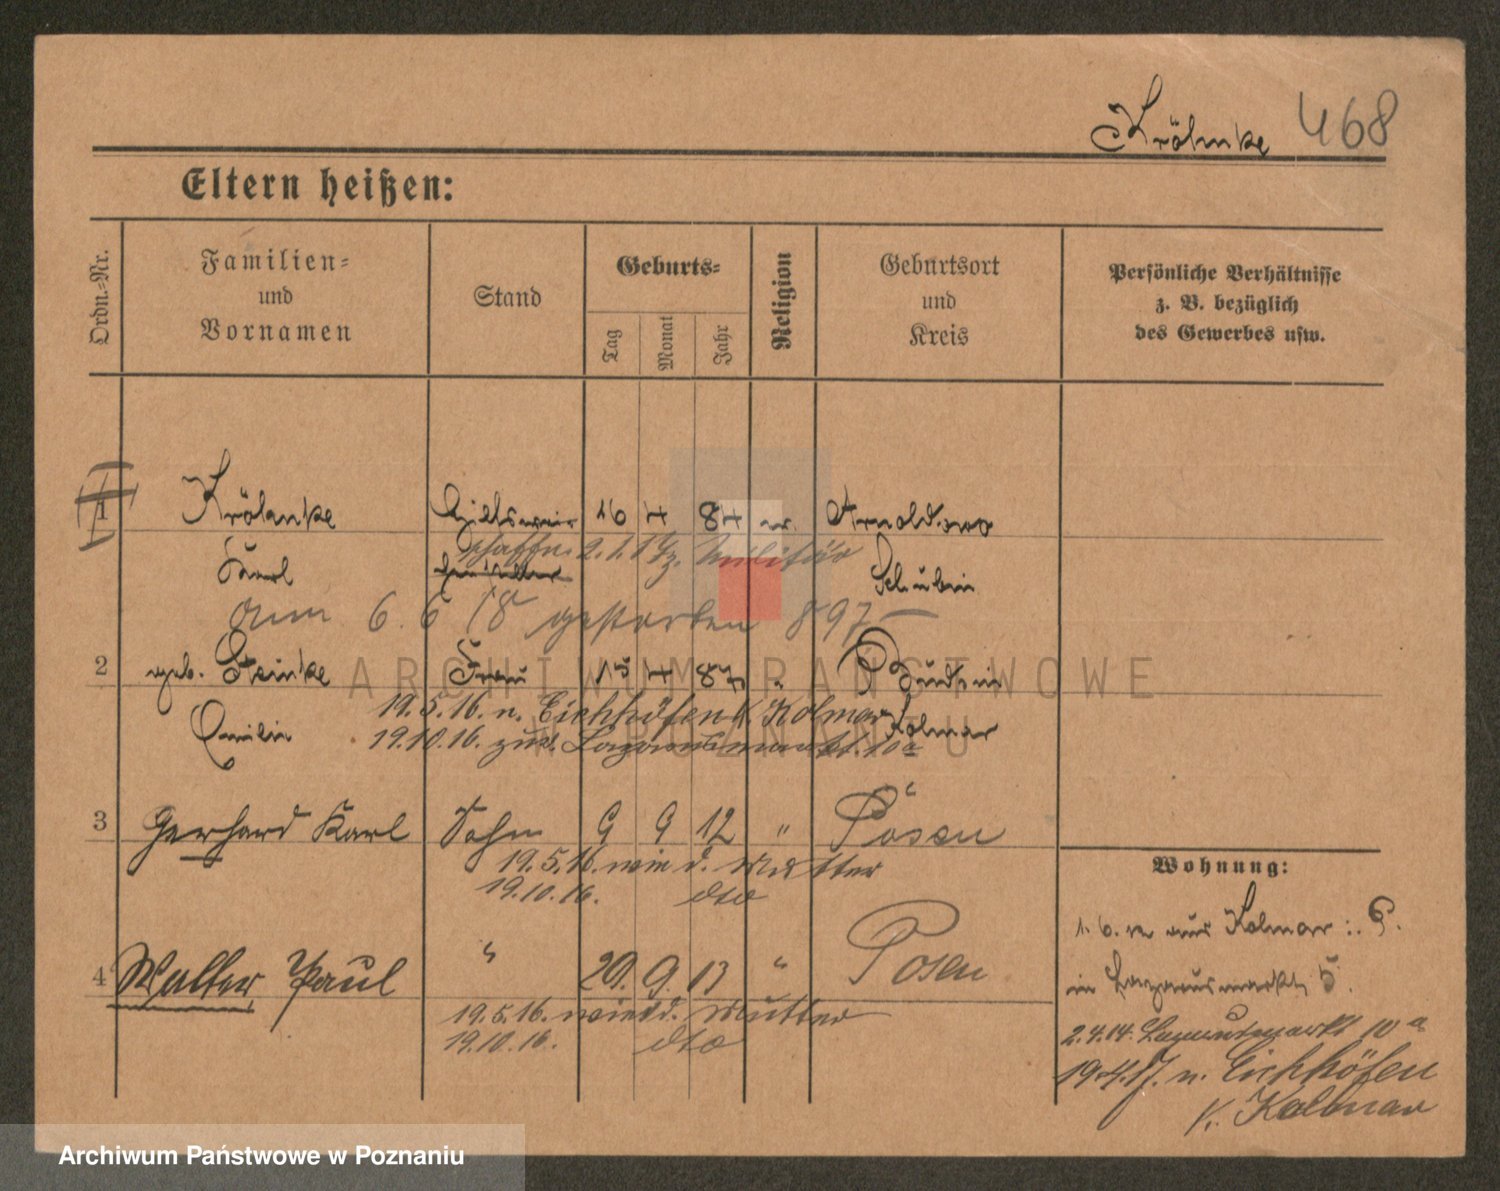 Kröhnke 468
Eltern heißen:
Ordn.-Nr.
Familien- und Vornamen
Stand
Geburts-
Tag
Monat
Jahr
Religion
Geburtsort und Kreis
Persönliche Verhältnisse z. B. bezüglich des Gewerbes usw.
1 Kröhnke 16 4 84 ev. Arnoldowo
schaffn. 2.1.17 z. Militär
Karl Schubin
am 6. 6 18 gestorben 897
2 geb. Steinke Frau 15 4 87 "
19.5.16. n. Eichhöfen K. Kolmar
Emilie Kolmar
19.10.16. zur. Lazarusmarkt. 10a
3 Gerhard Karl Sohn 9 9 12 " Posen
19.5.16. wie d. Mutter
19.10.16. dto
Wohnung:
1. 6. aus Kolmar i. P.
4 Walter Paul " 29. 9. 13 " Posen
in Lazarusmarkt, 5.
19.5.16. wie d. Mutter
2.4.14. Lazarusmarkt 10 a
19.10.16. dto
19.4.17. n. Eichhöfen
K. Kolmar
ARCHIWUM PAŃSTWOWE
W POZNANIU
Archiwum Państwowe w Poznaniu